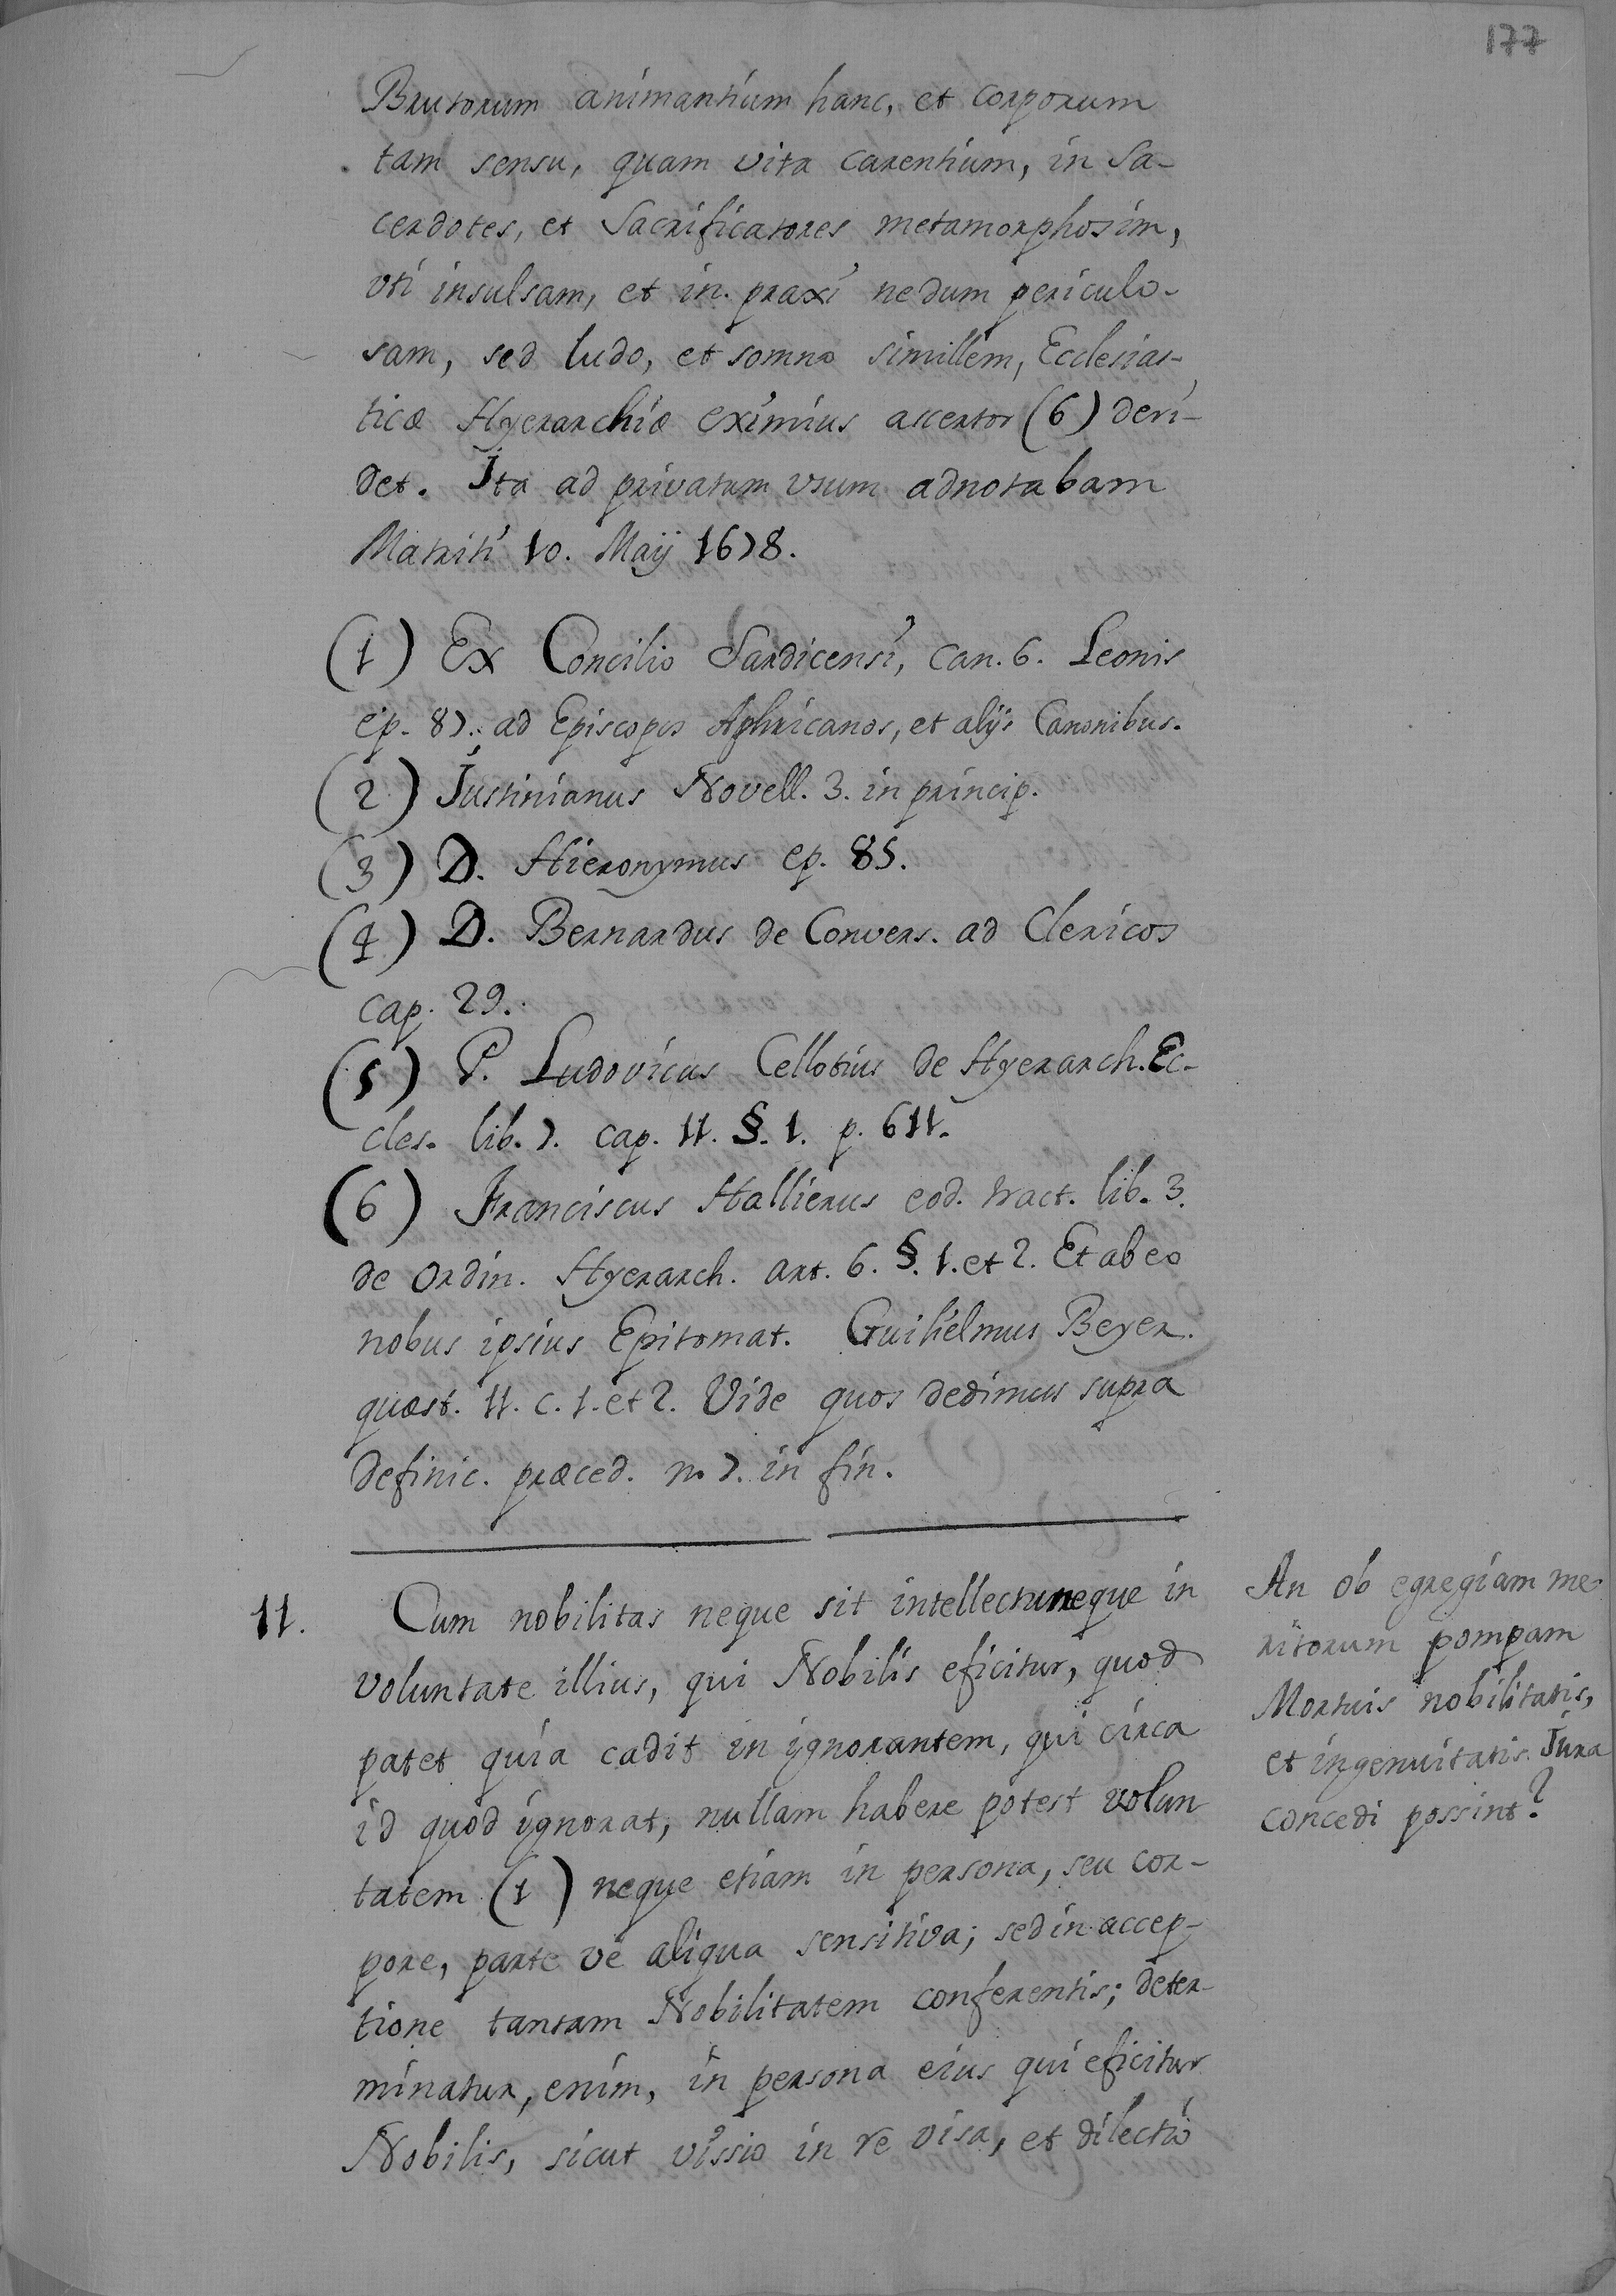 177
Brutorum animantium hanc, et corporum
tam sensu, quam vita carentium, in Sa-
cerdotes, et Sacrificatores metamorphosim,
vti insulsam, et in praxi nedum periculo-
sam, sed ludo, et somno simillem, Ecclesias-
ticæ Hyerarchiæ eximius assertor (6) deri-
det. Ita ad privatum vsum adnotabam
Matriti 10. Maÿ 1678.
(1) Ex Concilio Sardicensi, can. 6. Leonis
ep. 87. ad Episcopos Aphricanos, et alijs Canonibus.
(2) Justinianus Novell. 3. in princip.
(3) D. Hieronymus ep. 85.
(4) D. Bernardus de Convers. ad Clericos
cap. 29.
(5) P. Ludovicus Cellotius de Hyerarch. Ec-
cles. lib. 7. cap. 11. §. 1. p. 611.
(6) Franciscus Hallierus eod. tract. lib. 3.
de Ordin. Hyerarch. art. 6. §. 1. et 2. Et ab eo
nobus ipsius Epitomat. Guilielmus Beyer.
quæst. 11. c. 1. et 2. Vide quos dedimus supra
definic. præced. n. 7. in fin.
11. Cum nobilitas neque sit intellectu neque in
voluntate illius, qui Nobilis eficitur, quod
patet quia cadit in ygnorantem, qui circa
id quod ygnorat, nullam habere potest volun
tatem (1) neque etiam in persona, seu cor-
pore, parte ve aliqua sensitiva; sed in accep-
tione tantam Nobilitatem conferentis; deter-
minatur, enim, in persona eius qui eficitur
Nobilis, sicut vissio in re visa, et dilectio
An ob egregiam me
ritorum pompam
Mortuis nobilitatis,
et ingenuitatis Jura
concedi possint?